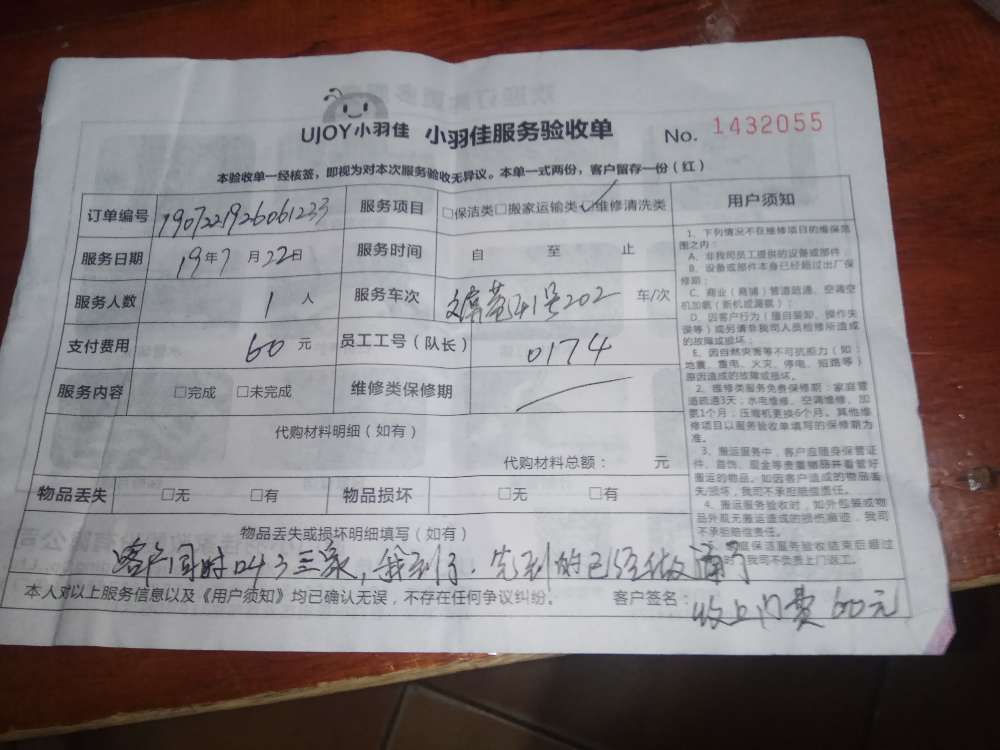 UJOY小羽佳 小羽佳服务验收单 No. 1432055
本验收单一经核签，即视为对本次服务验收无异议。本单一式两份，客户留存一份（红）
订单编号 1907221926061233 服务项目 □保洁类□搬家运输类☑维修清洗类
服务日期 19年7月22日 服务时间 自 至 止
服务人数 1人 服务车次 41号202 车/次
支付费用 60元 员工工号（队长） 0174
服务内容 □完成 □未完成 维修类保修期
代购材料明细（如有）
代购材料总额： 元
物品丢失 □无 □有 物品损坏 □无 □有
物品丢失或损坏明细填写（如有）
客户同时叫了三家，我到了．先到的已经做通了
本人对以上服务信息以及《用户须知》均已确认无误，不存在任何争议纠纷。 客户签名：
收上门费60元
用户须知
1、下列情况不在维修项目的维保范
围之内：
A、非我司员工提供的设备或部件
B、设备或部件本身已经超过出厂保
修期；
C、商业（商铺）管道疏通、空调空
机加氨（新机或漏氨）；
D、因客户行为（擅自装卸、操作失
误等）或另请非我司人员检修所造成
的故障或损坏；
E、因自然灾害等不可抗拒力（如：
地震、雷电、火灾、停电、短路等）
原因造成的故障或损坏。
2、维修类服务免费保修期：家庭管
道疏通3天；水电维修、空调维修、加
氨1个月；压缩机更换6个月。其他维
修项目以服务验收单填写的保修期为
准。
3、搬运服务中，客户应随身保管证
件、首饰、现金等贵重物品并看管好
搬运的物品。如因客户造成的物品丢
失/损坏，我司不承担赔偿责任。
4、搬运服务验收时，如外包装或物
品外观无搬运造成的损伤痕迹，我司
不承担赔偿责任。
保洁服务验收结束后超过
我司不负责上门返工。